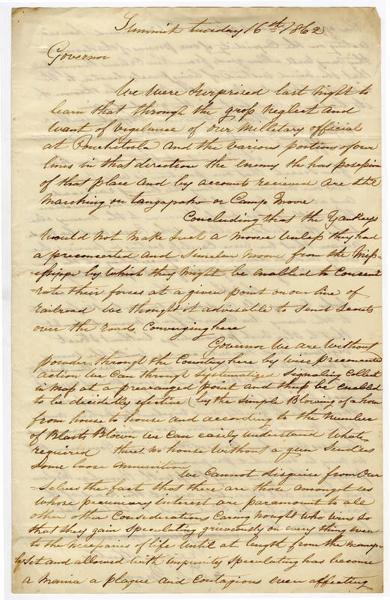 Summit tuesday 16th 1862
Governor
We were Surprised last night to
learn that through the gross neglect and
want of vigilance of our Military official
at Ponchatoula and the various portions of our
lines in that direction the enemy has possession
of that place and by accounts received are still
marching on Tangapaho or Camp Moore
Concluding that the Yankeys
would not make such a move unless they had
a preconcerted and similar move from the Miss-
issippi by which they might be enabled to concent
rate their forces at a given point on our line of
railroad we thought it adviseable to send Scouts
over the roads converging here
Governor we are without
powder through the Country here by wire preconcerted
action We can through Signals collect
in mass at a prearranged point and thus be enabled
to be decidedly effective (by the simple Blowing of a horn
from house to house and according to the number
of Blasts Blown we can easily understand whats
required theres no house without a gun besides
some loose ammunition
We cannot disguise from our
selves the fact that there are those among us
whose pecuniary interest are paramount to all
other considerations caring nought who wins so
that they gain speculating grievously on every thing even
to the necessaries of life until at length from the example
set and allowed with impunity speculating has become
a mania a plague and contagious even affecting